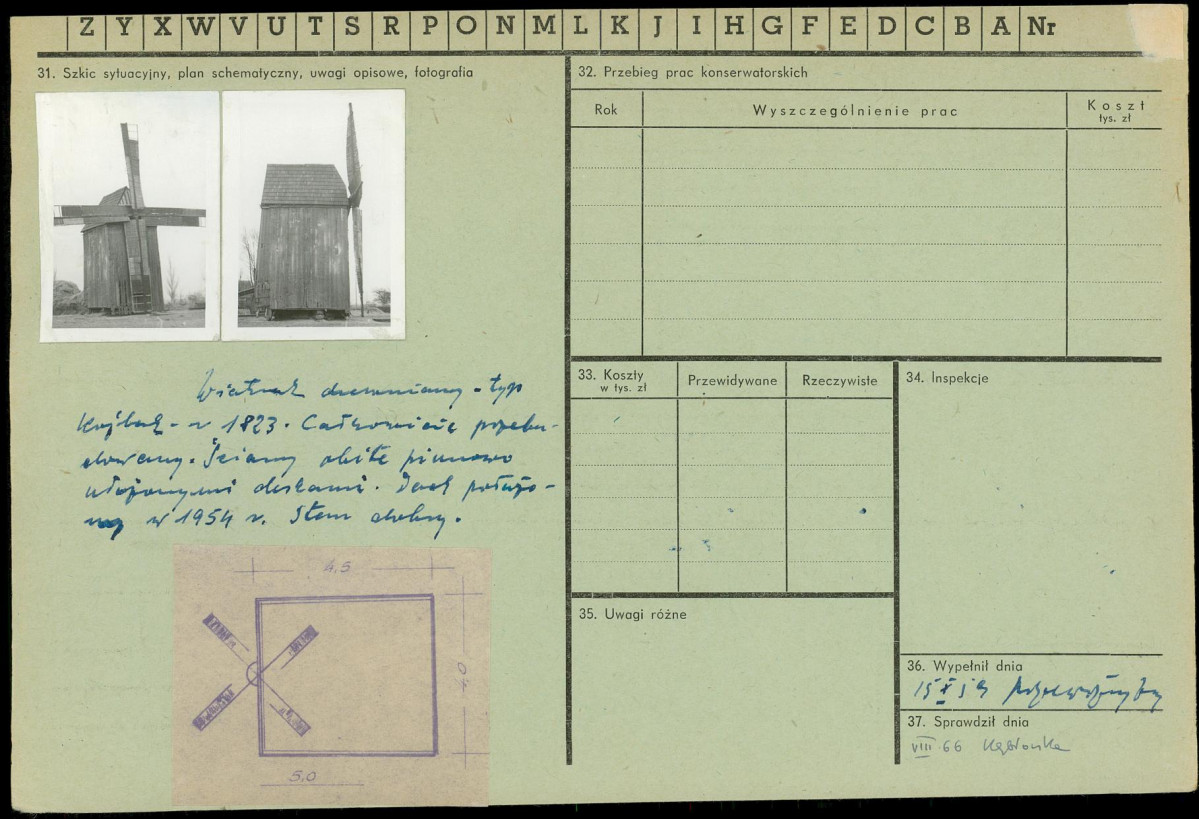 Z Y X W V U T S R P O N M L K J I H G F E D C B A Nr
31. Szkic sytuacyjny, plan schematyczny, uwagi opisowe, fotografia
Wiatrak drewniany - typ
Koźlak - r 1823. Całkowicie przebu-
dowany. Ściany obite pionowo
ułożonymi deskami. Dach położo-
ny w 1954 r. Stan dobry.
4,5
4,0
5,0
32. Przebieg prac konserwatorskich
Rok Wyszczególnienie prac Koszt
tys. zł
33. Koszty
w tys. zł
Przewidywane Rzeczywiste
34. Inspekcje
35. Uwagi różne
36. Wypełnił dnia
15 X 59
37. Sprawdził dnia
VIII 66